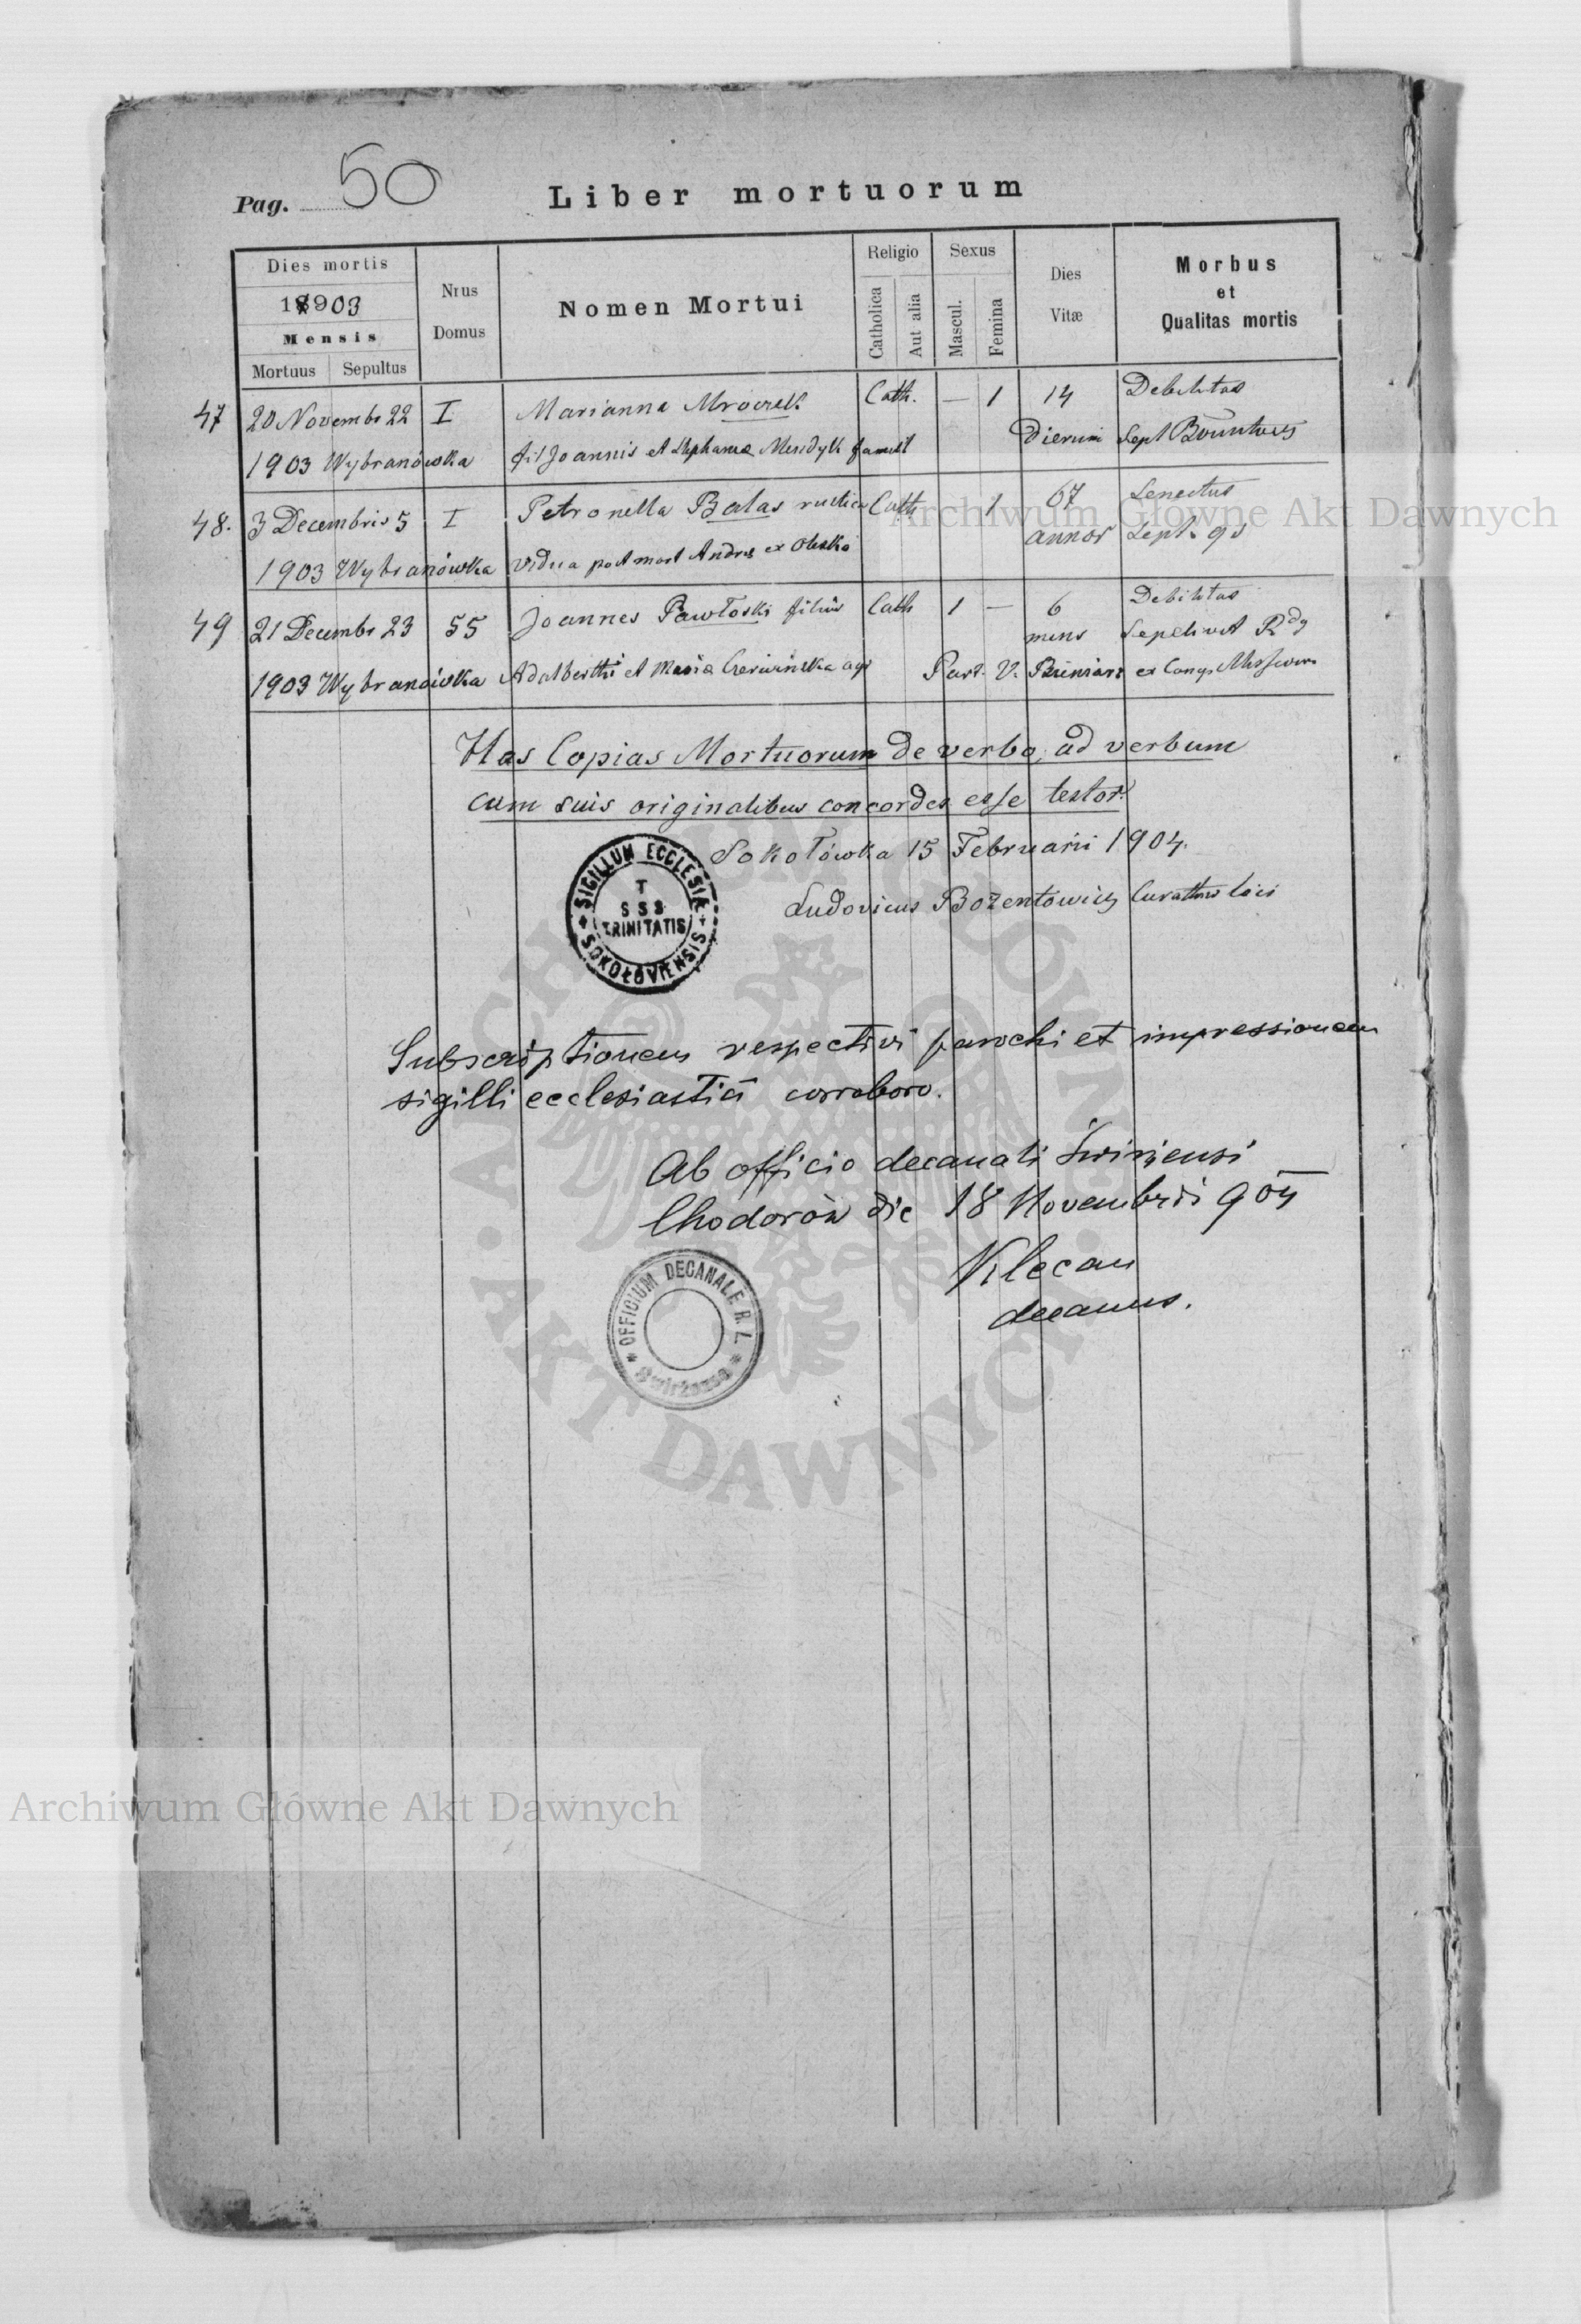 Pag. 50
Liber mortuorum
Dies mortis
1903
Mensis
Mortuus Sepultus
Nrus
Domus
Nomen Mortui
Religio
Catholica
Aut alia
Sexus
Mascul.
Femina
Dies
Vitæ
Morbus
et
Qualitas mortis
47 20 Novembr 22 I Marianna Mroczek Cath. — 1 14 Debilitas
1903 Wybranówka fil Joannis et Stephanæ famul Dierum Sept
48. 3 Decembris 5 I Petronella Balas rustica Cath 1 67 Senectus
1903 Wybranówka vidua post mort Andreæ ex annor Sept. qs
49 21 Decembr 23 55 Joannes Pawłoski filius Cath 1 — 6 Debilitas
mens Sepelivit Rdg
1903 Wybranówka Adalberthi et Maria Czerwinska agr ex Congr
Has Copias Mortuorum de verbo ad verbum
cum suis originalibus concordes esse testor.
Sokołówka 15 Februarii 1904.
Ludovicus Bożentowicz Curattus loci
SIGILLUM ECCLESIÆ
T
SSS
TRINITATIS
SOKOŁOVIENSIS
Subscriptionem respectivi parochi et impressionem
sigilli ecclesiastici corroboro.
Ab officio decanali Swirzensi
Chodorów die 18 Novembris 904
Klecan
decanus.
OFFICIUM DECANALE R. L.
Swirzense
Archiwum Główne Akt Dawnych
Archiwum Główne Akt Dawnych
ARCHIWUM GŁÓWNE
AKT DAWNYCH